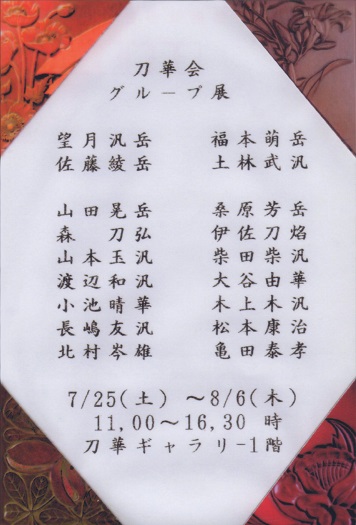 刀華会
グループ展
望月汎岳 福本萌岳
佐藤綾岳 土林武汎
山田晃岳 桑原芳岳
森 刀弘 伊佐刀焔
山本玉汎 柴田柴汎
渡辺和汎 大谷由華
小池晴華 木上木汎
長嶋友汎 松本康治
北村岑雄 亀田泰孝
7/25(土) ～8/6(木)
11,00～16,30 時
刀華ギャラリー1階